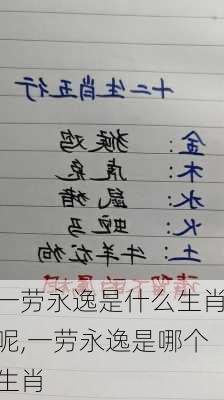 十二生肖五行
金：猴鸡
木：虎兔
水：鼠猪
火：蛇马
土：牛羊龙狗
一劳永逸是什么生肖
呢,一劳永逸是哪个
生肖